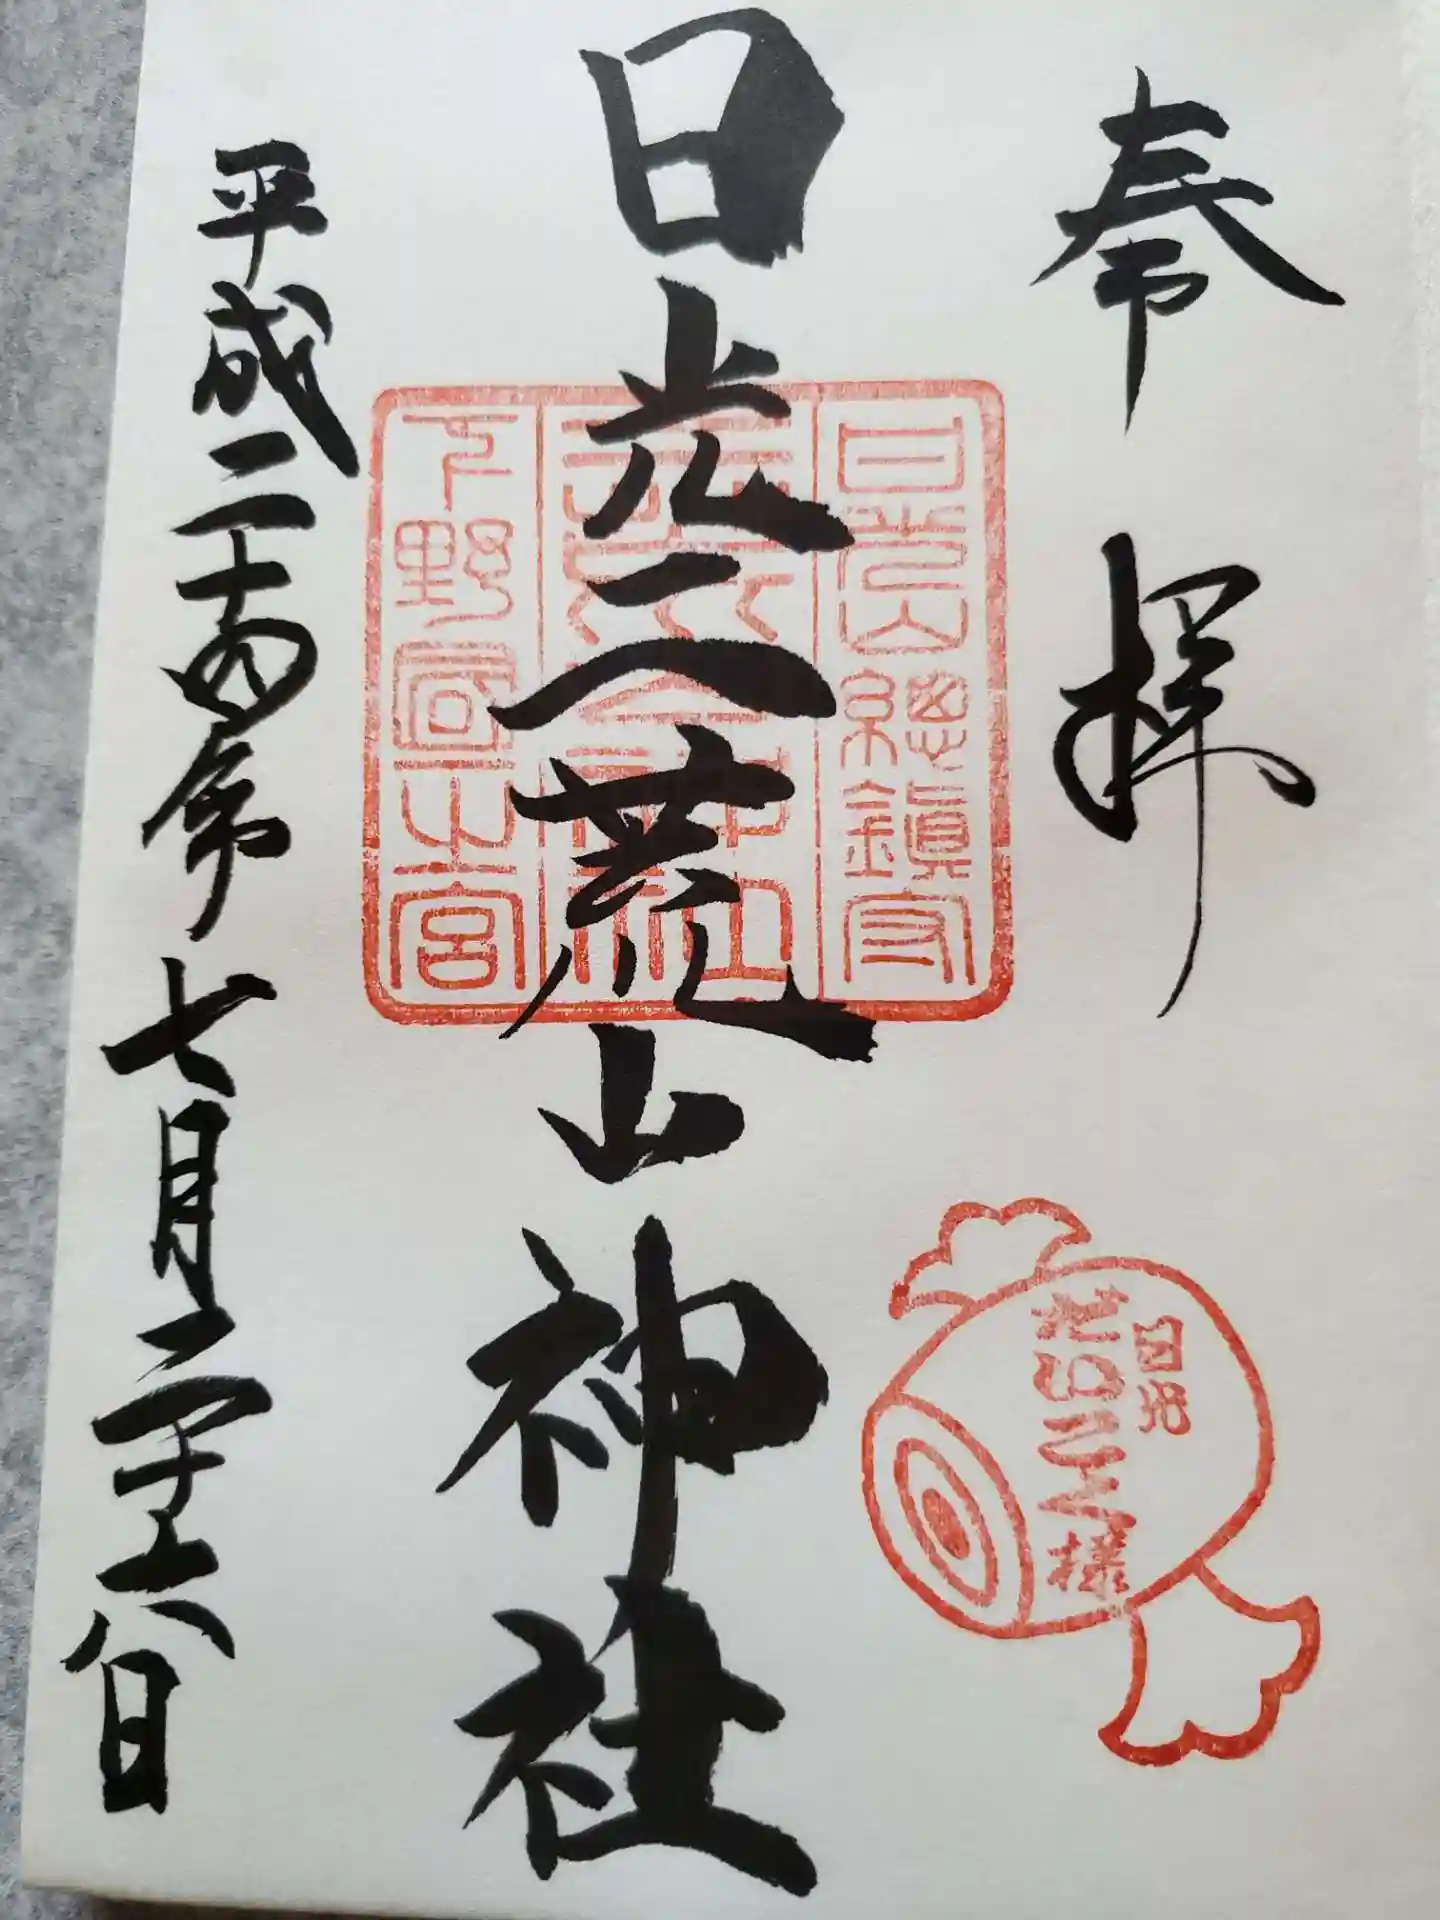 奉拝
日光二荒山神社
日光山總鎮守
二荒山神社
下野國一之宮
日光
だいこく様
平成二十四年七月二十六日